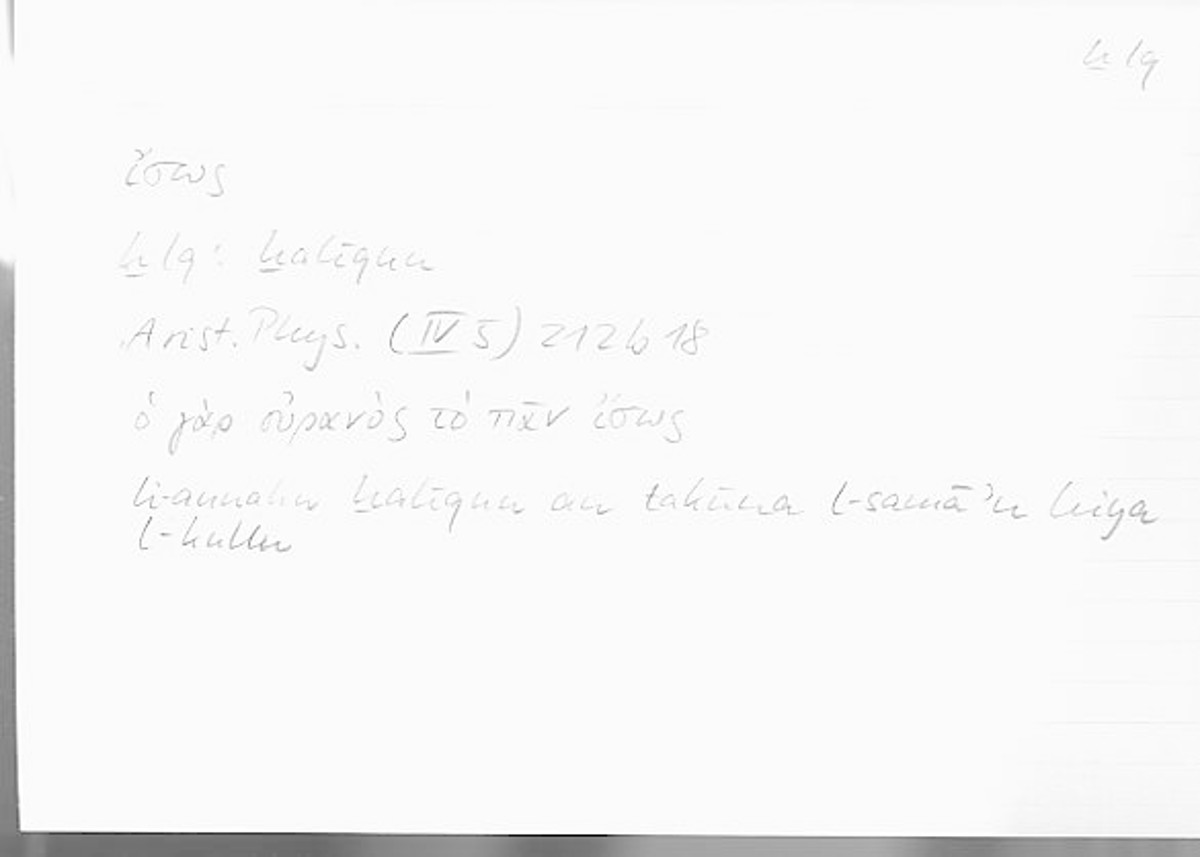 ḫlq
ἴσως
ḫlq: ḫalīqun
Arist. Phys. (IV 5) 212b18
ὁ γὰρ οὐρανὸς τὸ πᾶν ἴσως
li-annahu ḫalīqun an takūna l-samāʾu hiya
l-kullu